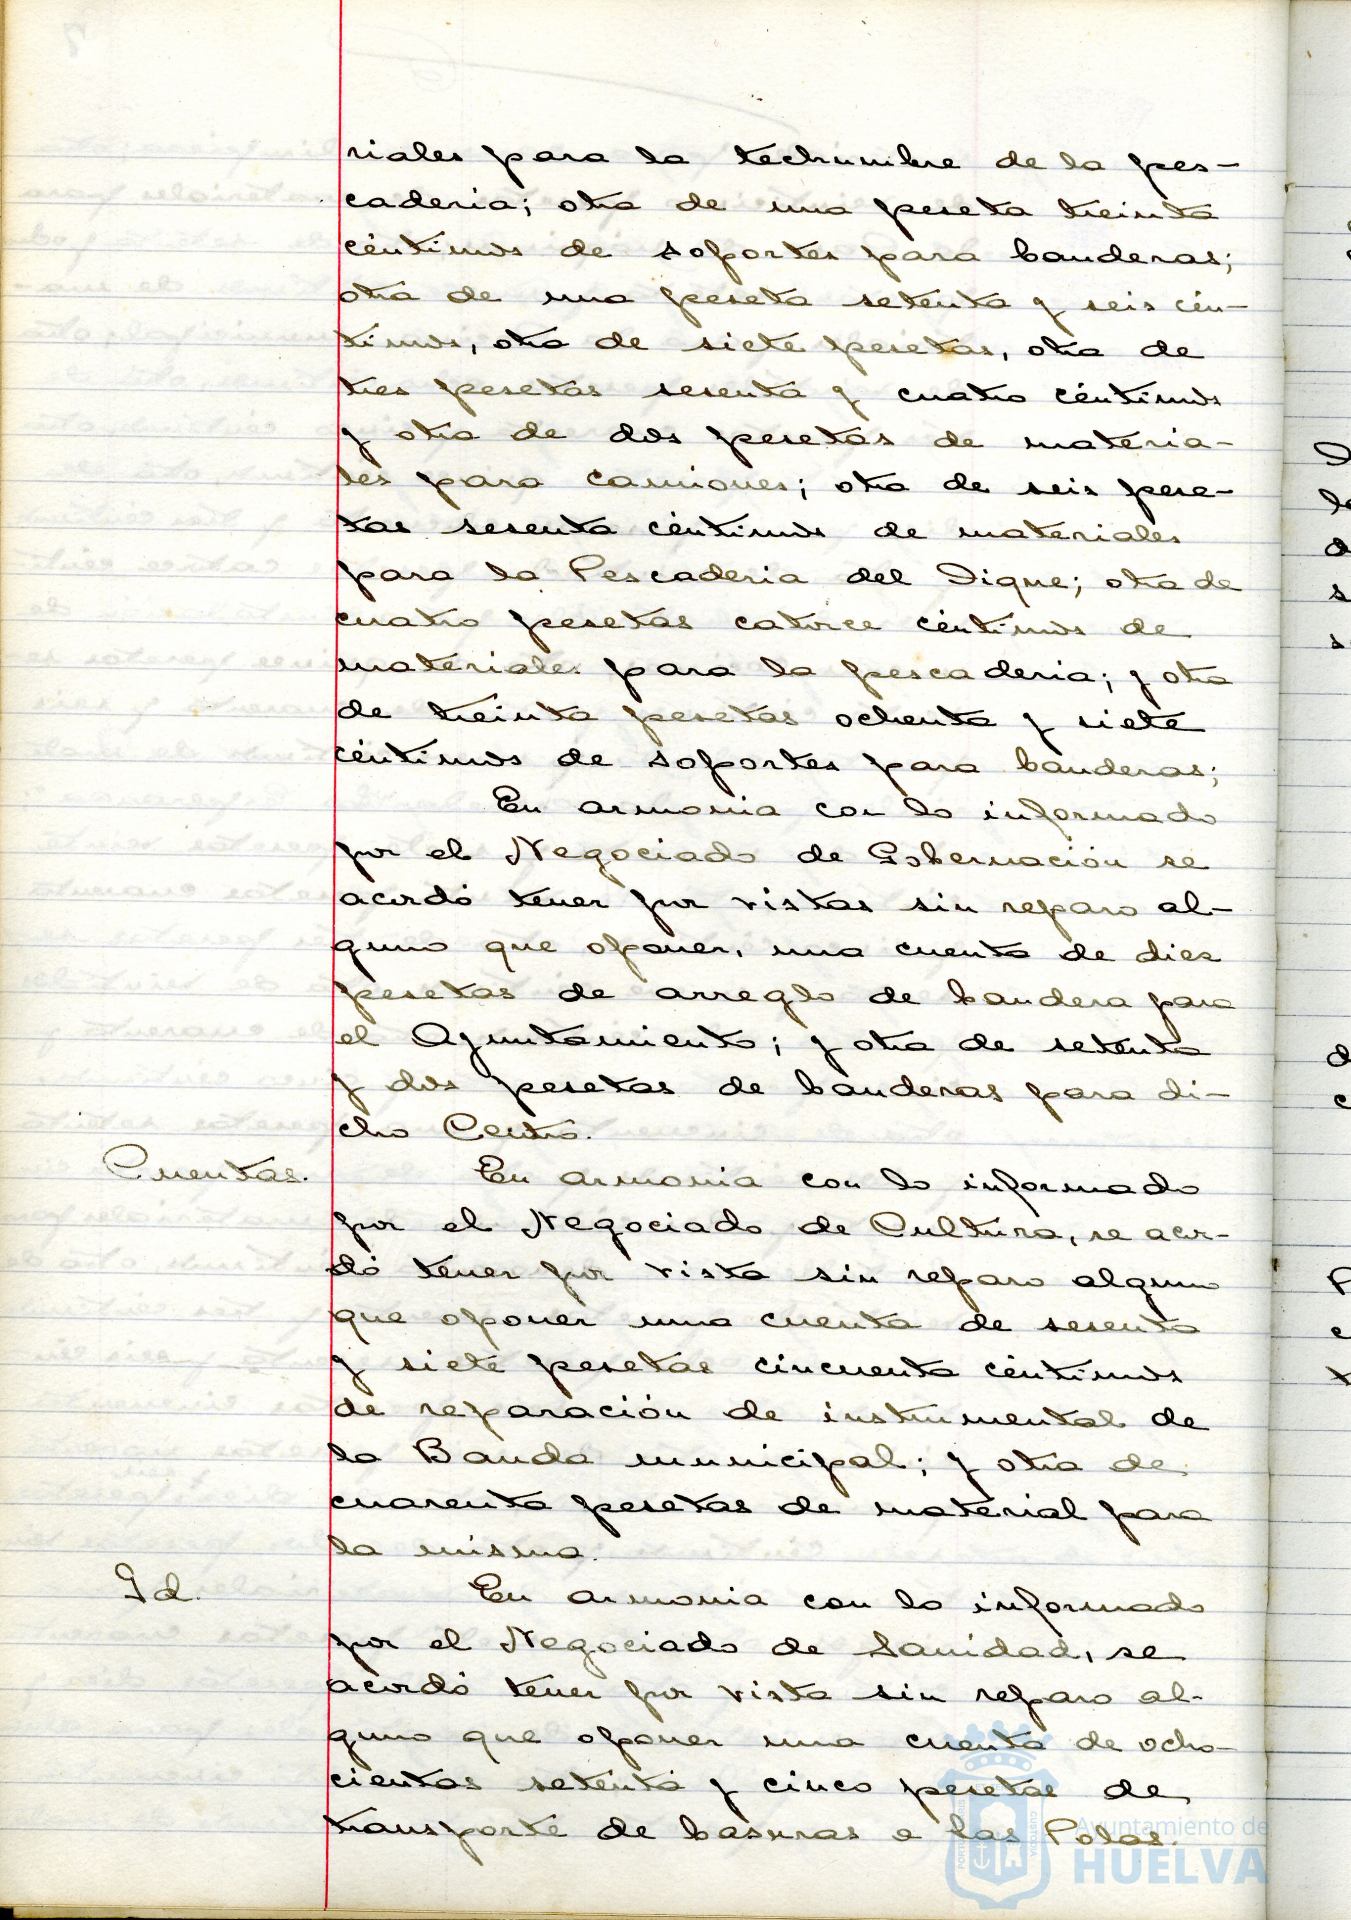 riales para la techumbre de la pes-
caderia; otra de una peseta treinta
céntimos de soportes para banderas;
otra de una peseta setenta y seis cén-
timos, otra de siete pesetas, otra de
tres pesetas sesenta y cuatro céntimos
y otra de dos pesetas de materia-
les para camiones; otra de seis pese-
tas sesenta céntimos de materiales
para la Pescaderia del Dique; otra de
cuatro pesetas catorce céntimos de
materiales para la pescaderia; y otra
de treinta pesetas ochenta y siete
céntimos de soportes para banderas;
En armonia con lo informado
por el Negociado de Gobernación se
acordó tener por vistas sin reparo al-
guno que oponer, una cuenta de diez
pesetas de arreglo de bandera para
el Ayuntamiento; y otra de setenta
y dos pesetas de banderas para di-
cho Centro.
Cuentas. En armonia con lo informado
por el Negociado de Cultura, se acor-
dó tener por vista sin reparo alguno
que oponer una cuenta de sesenta
y siete pesetas cincuenta céntimos
de reparación de instrumental de
la Banda municipal; y otra de
cuarenta pesetas de material para
la misma.
Id. En armonia con lo informado
por el Negociado de Sanidad, se
acordó tener por vista sin reparo al-
guno que oponer una cuenta de ocho-
cientas setenta y cinco pesetas de
transporte de basuras a las
Ayuntamiento de
HUELVA